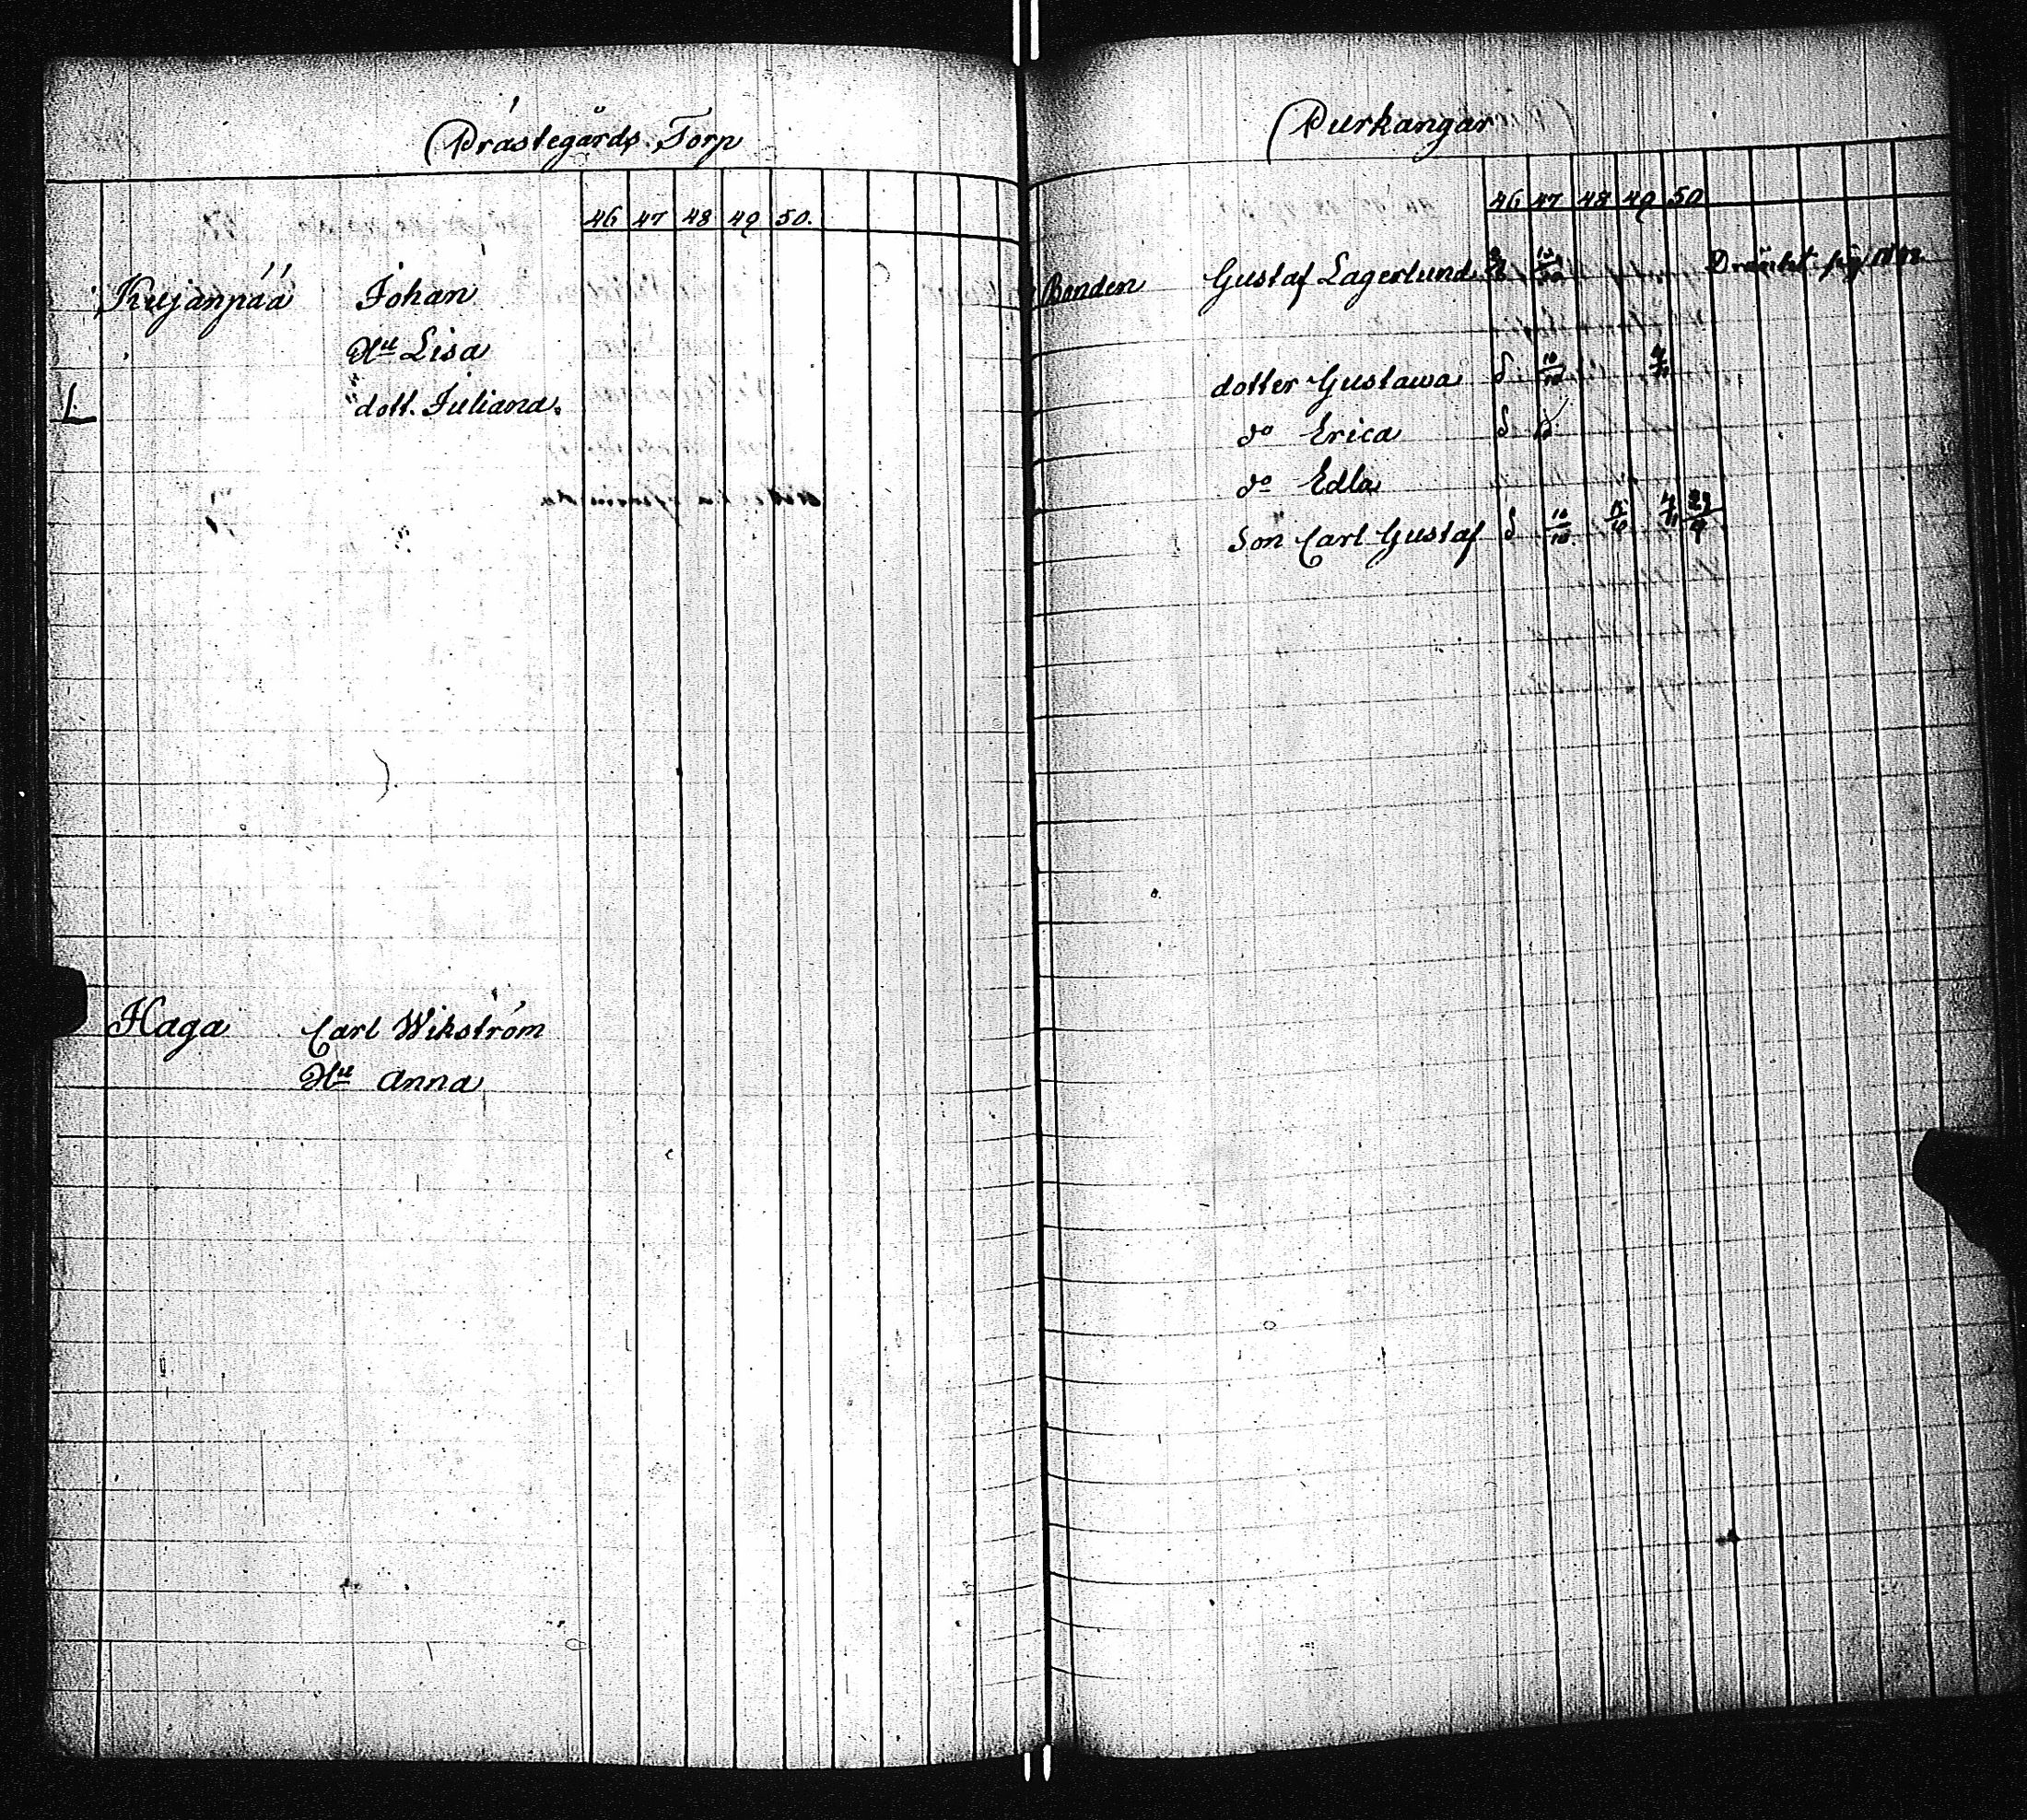 Prästegårds Torp
46 47 48 49 50.
Kujanpää Johan
Hu Lisa
dott. Juliana.
Haga Carl Wikström
Hu Anna
Purkangar
46 47 48 49 50
Bonden Gustaf Lagerlund 10/10 sig
dotter Gustawa δ 10/10 4/11
do Erica δ
do Edla
Son Carl Gustaf δ 10/10 4/11